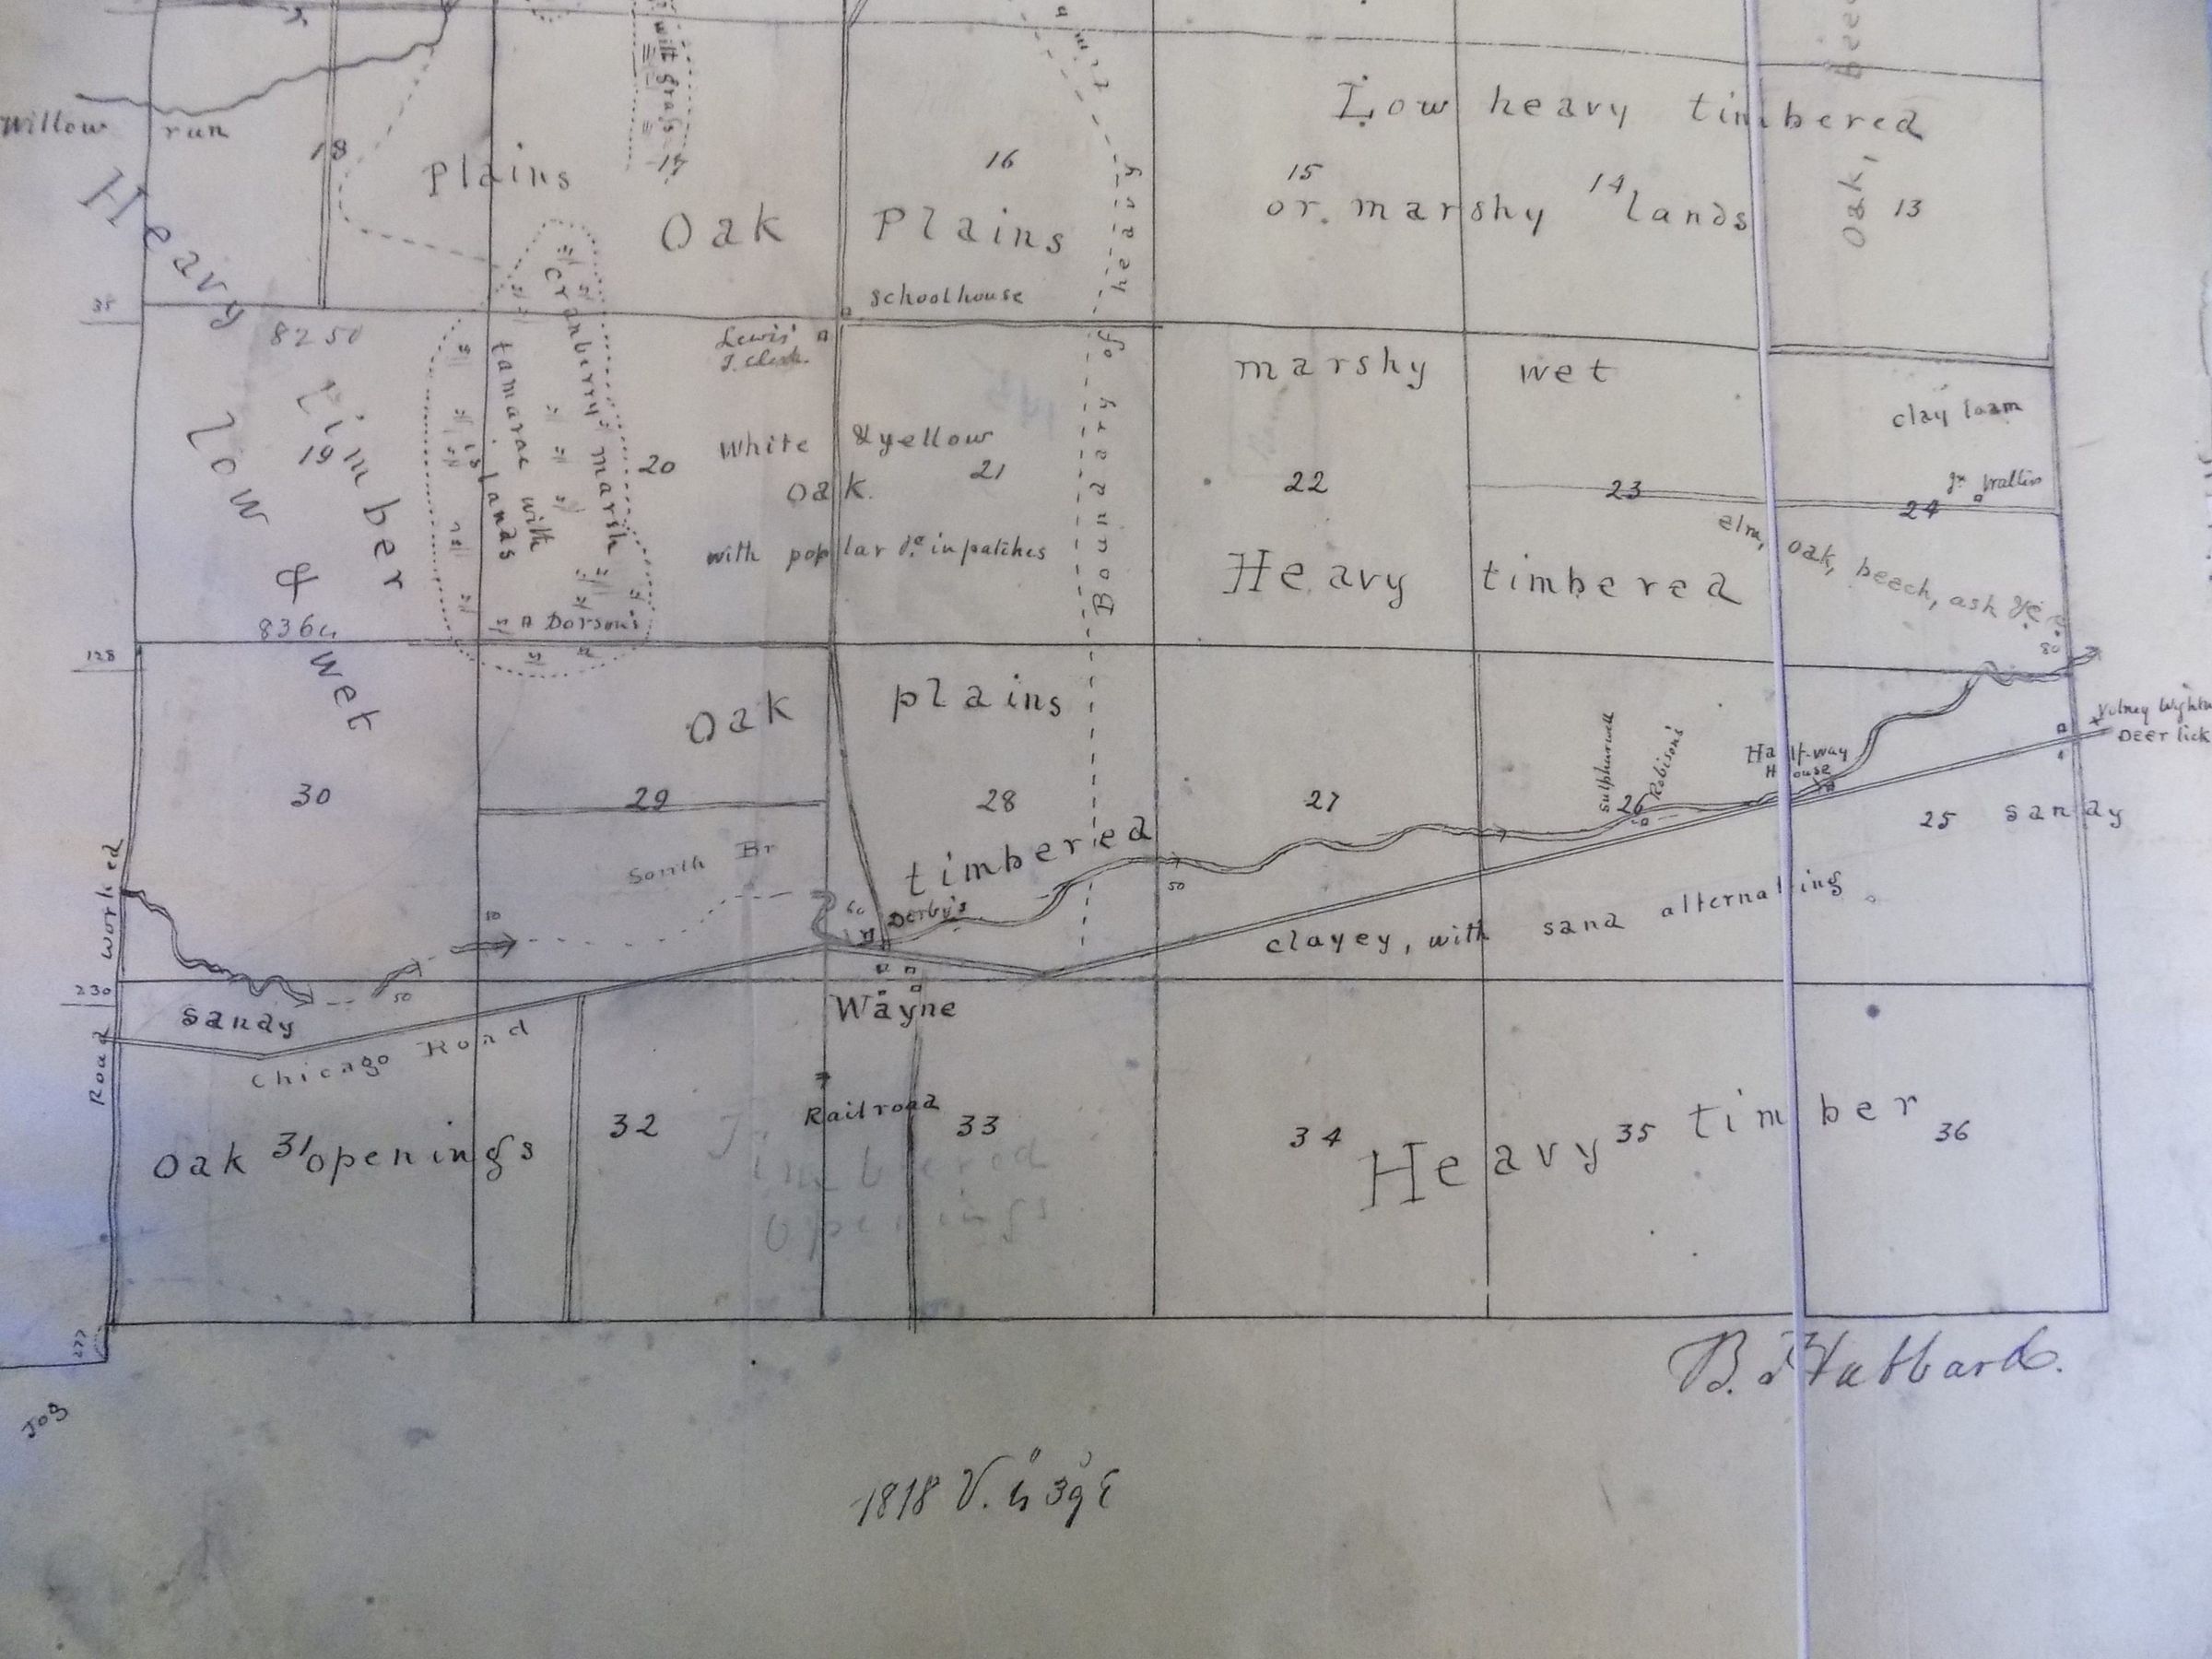 with grass
Low heavy timbered
Willow run
18
plains
17
16
15
14
13
or marshy lands
Oak,
Oak Plains
Heavy
heavy
schoolhouse
35
8250
Lewis'
marshy wet
cranberry marsh
tamarac with
islands
clay loam
Low & wet
timber
19
20
White & yellow
21
oak.
22
23
24
Boundary of
elm, oak, beech, ash &c
with poplar &c in patches
Heavy timbered
Dorson's
8364
128
80
Oak plains
Deer lick
sulphurwell
Robisons'
Half-way
House
30
29
28
27
26
25
sandy
timbered
South Br
Road worked
50
10
60
Derby's
clayey, with sand alternating
230
50
sandy
Wayne
Chicago Road
Railroad
Oak openings
31
32
33
34
35
36
Heavy timber
Timbered
openings
277
Jog
B. Hubbard.
1818